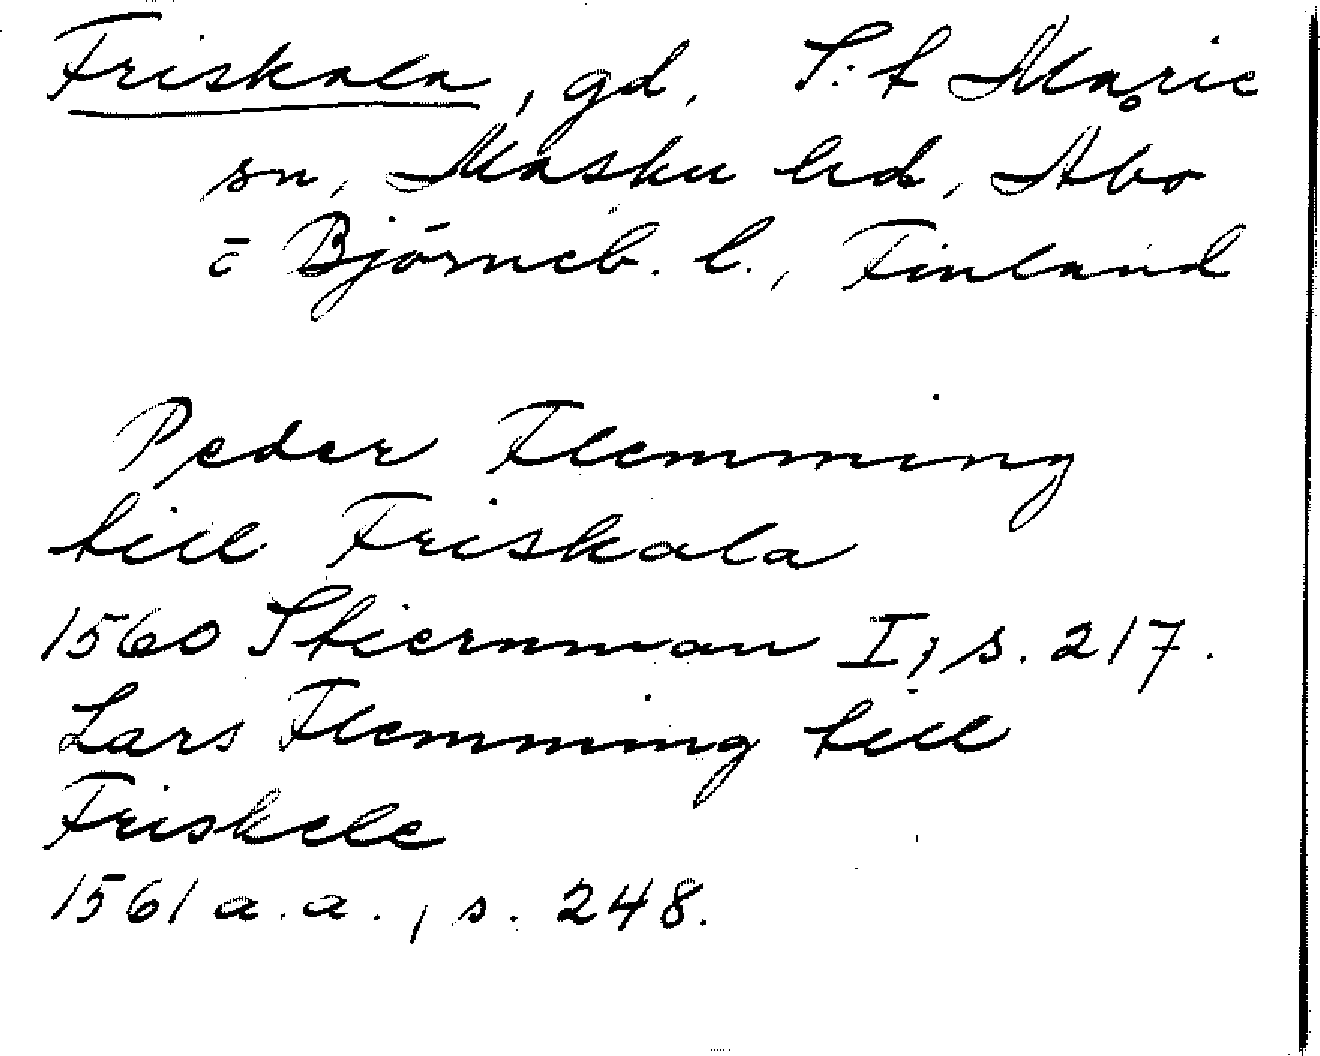 Friskala, gd, S:t Marie
sn, Masku hd, Åbo
o Björneb. l., Finland
Peder Flemming
till Friskala
1560 Stiernman I, s. 217.
Lars Flemming till
Friskele
1561 a.a., s. 248.